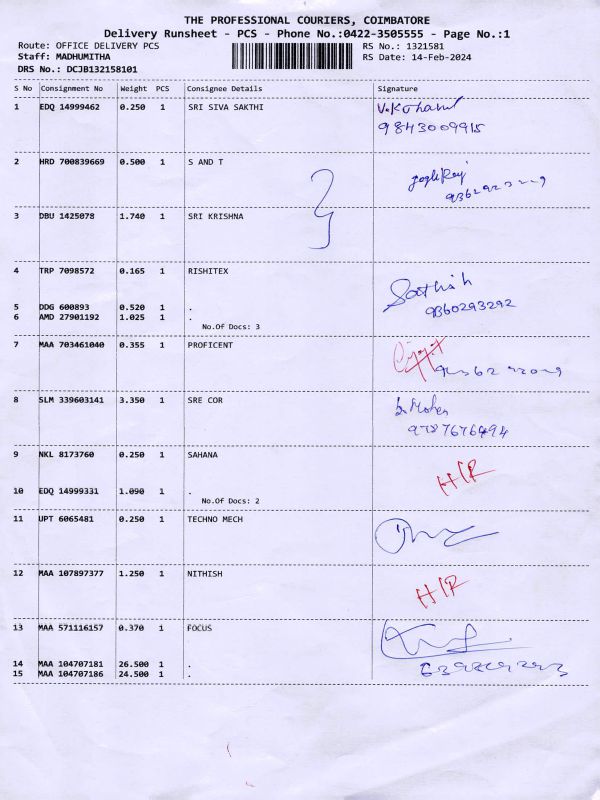 THE PROFESSIONAL COURIERS, COIMBATORE
Delivery Runsheet - PCS - Phone No.:0422-3505555 - Page No.:1
Route: OFFICE DELIVERY PCS RS No.: 1321581
Staff: MADHUMITHA RS Date: 14-Feb-2024
DRS No.: DCJB132158101
S No Consignment No Weight PCS Consignee Details Signature
1 EDQ 14999462 0.250 1 SRI SIVA SAKTHI
9843009915
2 HRD 700839669 0.500 1 S AND T
3 DBU 1425078 1.740 1 SRI KRISHNA
4 TRP 7098572 0.165 1 RISHITEX Sathish
5 DDG 600893 0.520 1 . 9360293292
6 AMD 27901192 1.025 1 .
No.Of Docs: 3
7 MAA 703461040 0.355 1 PROFICENT
8 SLM 339603141 3.350 1 SRE COR
9787676494
9 NKL 8173760 0.250 1 SAHANA
10 EDQ 14999331 1.090 1 .
No.Of Docs: 2
11 UPT 6065481 0.250 1 TECHNO MECH
12 MAA 107897377 1.250 1 NITHISH
13 MAA 571116157 0.370 1 FOCUS
14 MAA 104707181 26.500 1 .
15 MAA 104707186 24.500 1 .